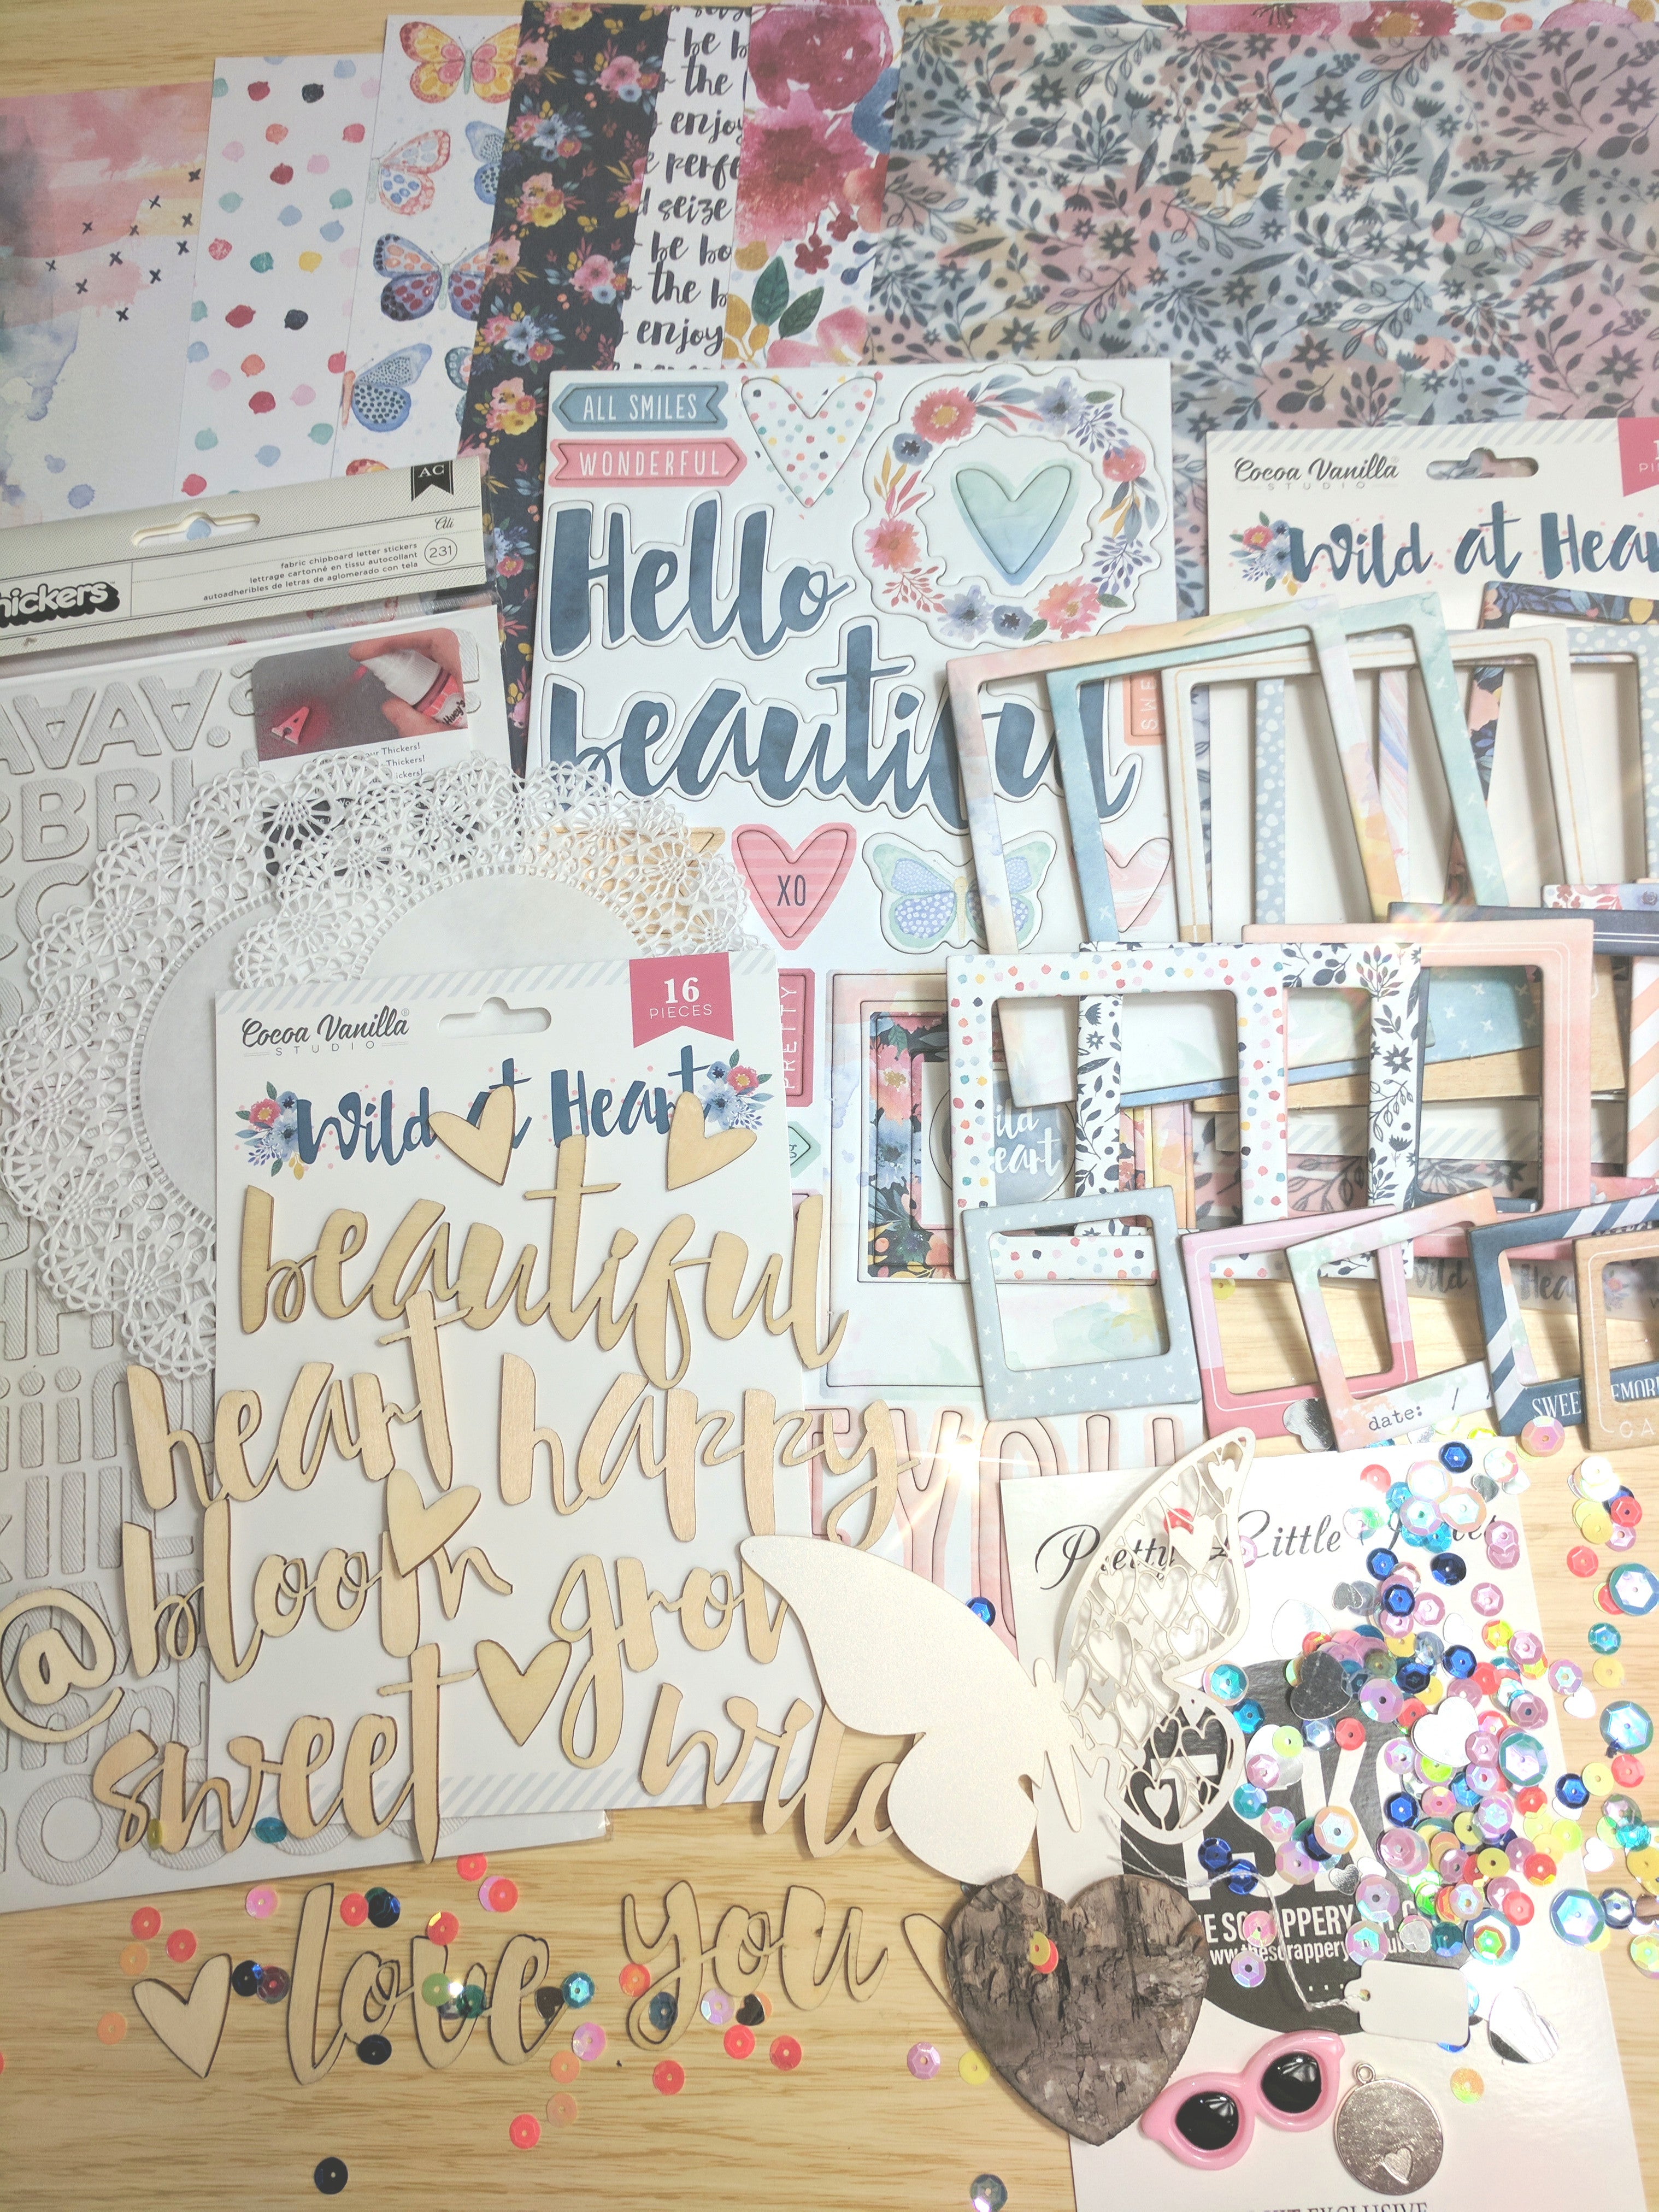 be b
the
enjoy
perfe
seize
be bo
the b
enjoy
ALL SMILES
WONDERFUL
Hello
beautiful
XO
PRETTY
Cocoa Vanilla
STUDIO
Wild at Hear
AC
Ali
231
fabric chipboard letter stickers
lettrage cartonné en tissu autocollant
autoadheribles de letras de aglomerado con tela
hickers
Thickers!
Thickers!
Cocoa Vanilla®
STUDIO
16
PIECES
Wild at Heart
beautiful
heart
happy
bloom
grow
@
sweet
wild
love you
ild
eart
YOU
date: /
SWEE
EMOR
CA
Pretty Little
TSKC
E SCRAPPERY
www.thescrappery